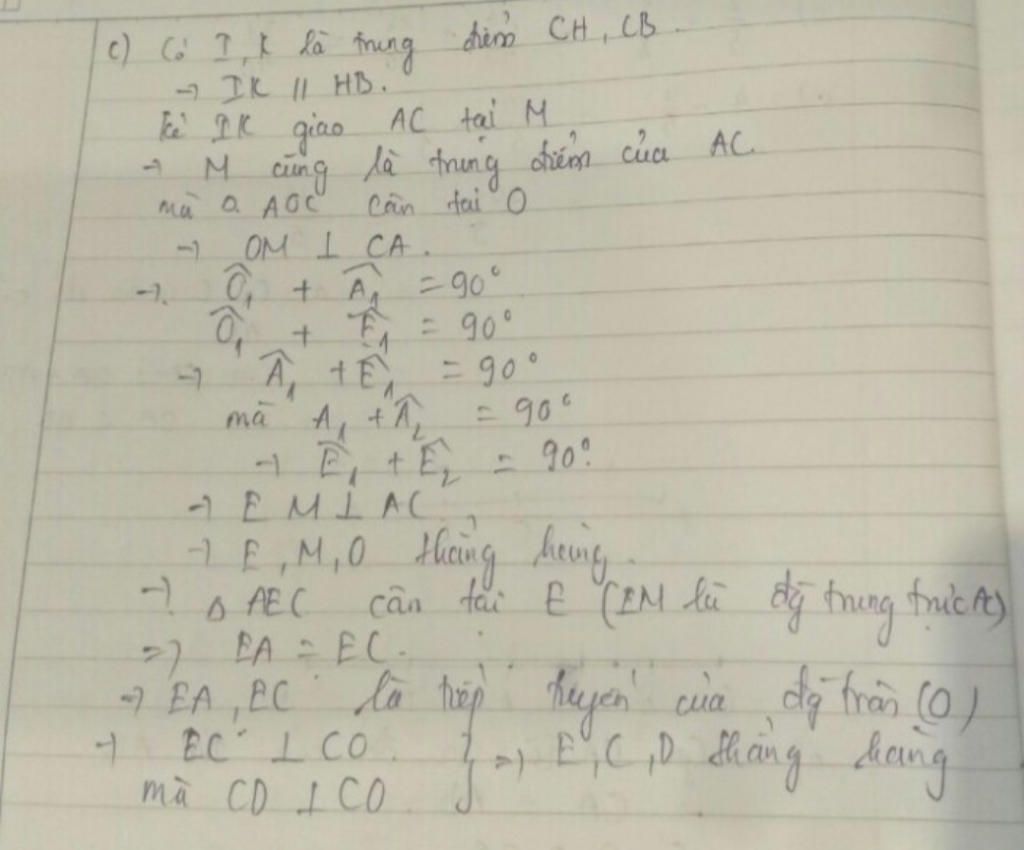 c) Có I, K là trung điểm CH, CB.
→ IK // HB.
kẻ IK giao AC tại M
→ M cũng là trung điểm của AC.
mà △ AOC cân tại O
→ OM ⊥ CA.
→ Ô₁ + Â₁ = 90°
Ô₁ + Ê₁ = 90°
→ Â₁ + Ê₁ = 90°
mà A₁ + Â₂ = 90°
→ Ê₁ + Ê₂ = 90°.
→ E M ⊥ AC
→ E, M, O thẳng hàng.
→ △ AEC cân tại E (EM là đg trung trực AC)
=> EA = EC.
→ EA, EC là tiếp tuyến của đg tròn (O)
→ EC ⊥ CO. } => E, C, D thẳng hàng
mà CD ⊥ CO